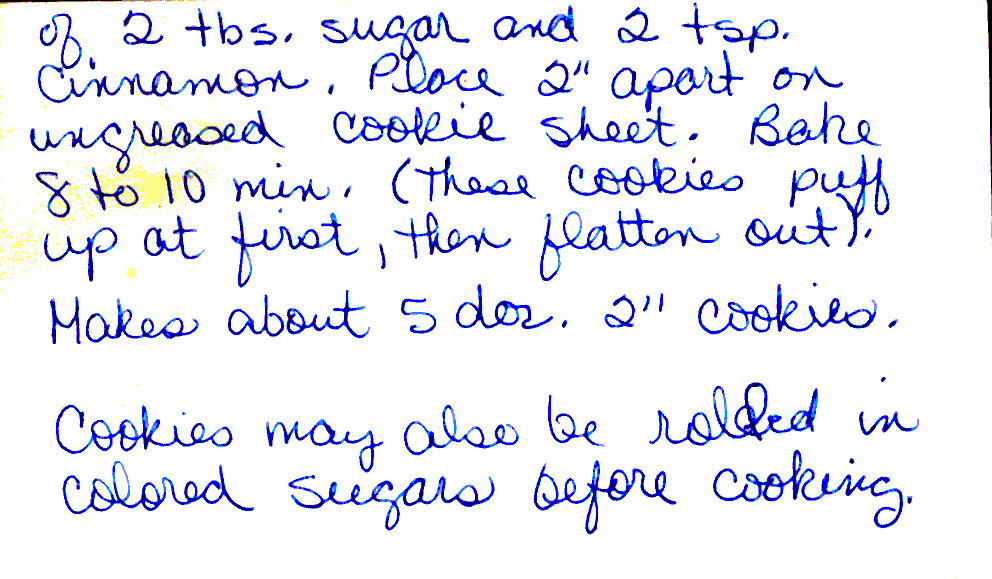 of 2 tbs. sugar and 2 tsp.
Cinnamon. Place 2" apart on
ungreased cookie sheet. Bake
8 to 10 min. (These cookies puff
up at first, then flatten out).
Makes about 5 doz. 2" cookies.
Cookies may also be rolled in
colored sugars before cooking.